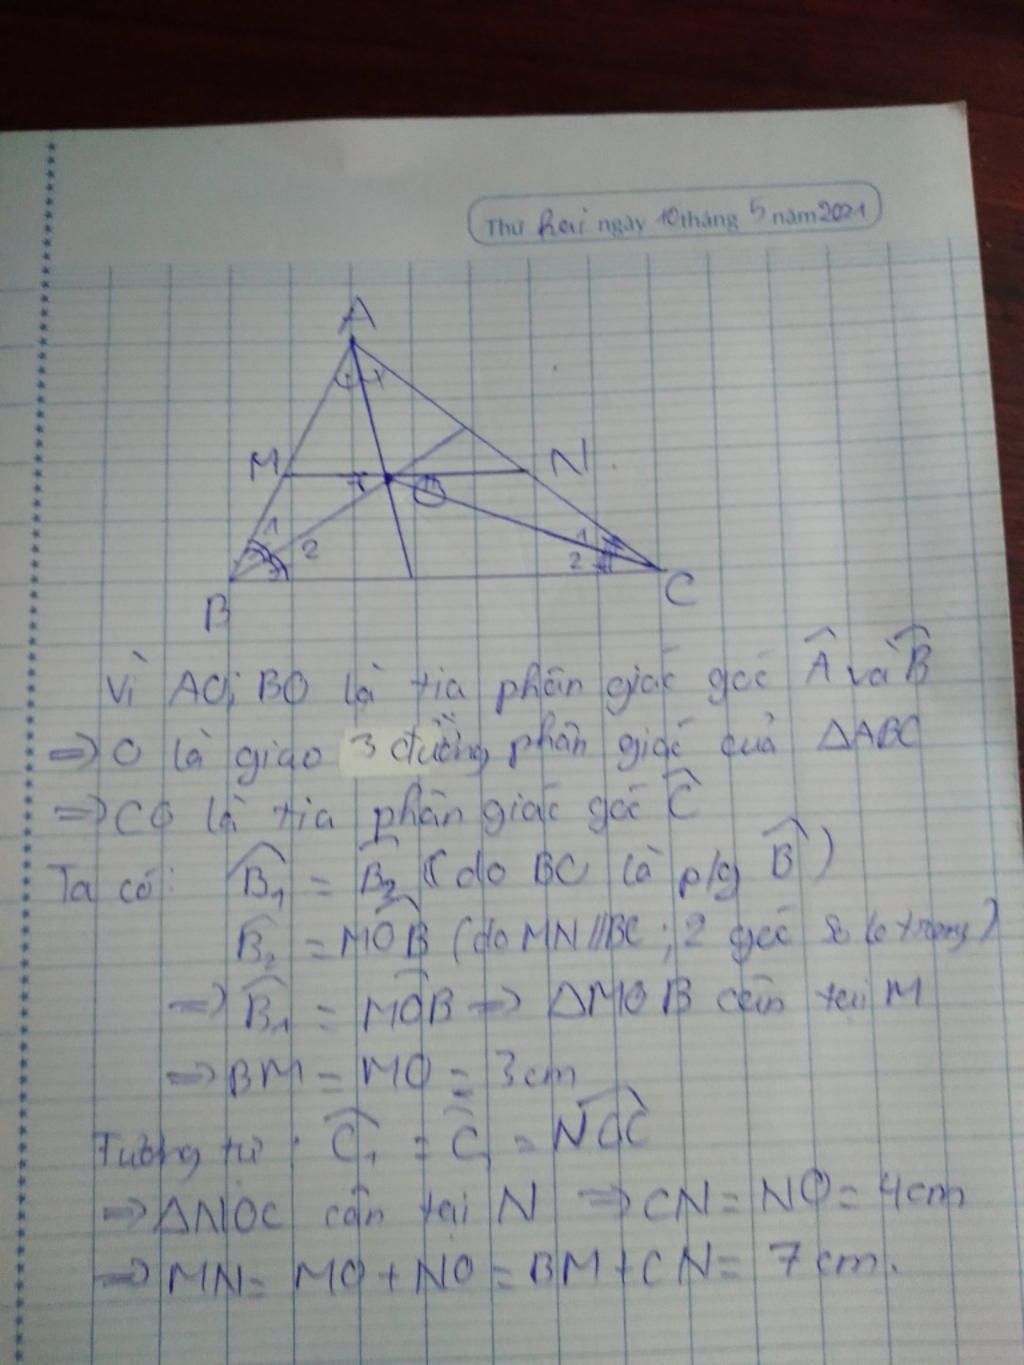 Thứ hai ngày 10 tháng 5 năm 2021
A
M N
O
1 2 1 2
B C
Vì AO; BO là tia phân giác góc Â và B̂
=> O là giao 3 đường phân giác của ΔABC
=> CO là tia phân giác góc Ĉ
Ta có: B̂₁ = B̂₂ (do BC là p/g B̂)
B̂₂ = MÔB (do MN // BC; 2 góc so le trong)
=> B̂₁ = MÔB => ΔMOB cân tại M
=> BM = MO = 3cm
Tương tự: Ĉ₁ = Ĉ = NÔC
=> ΔNOC cân tại N => CN = NO = 4cm
=> MN = MO + NO = BM + CN = 7cm.